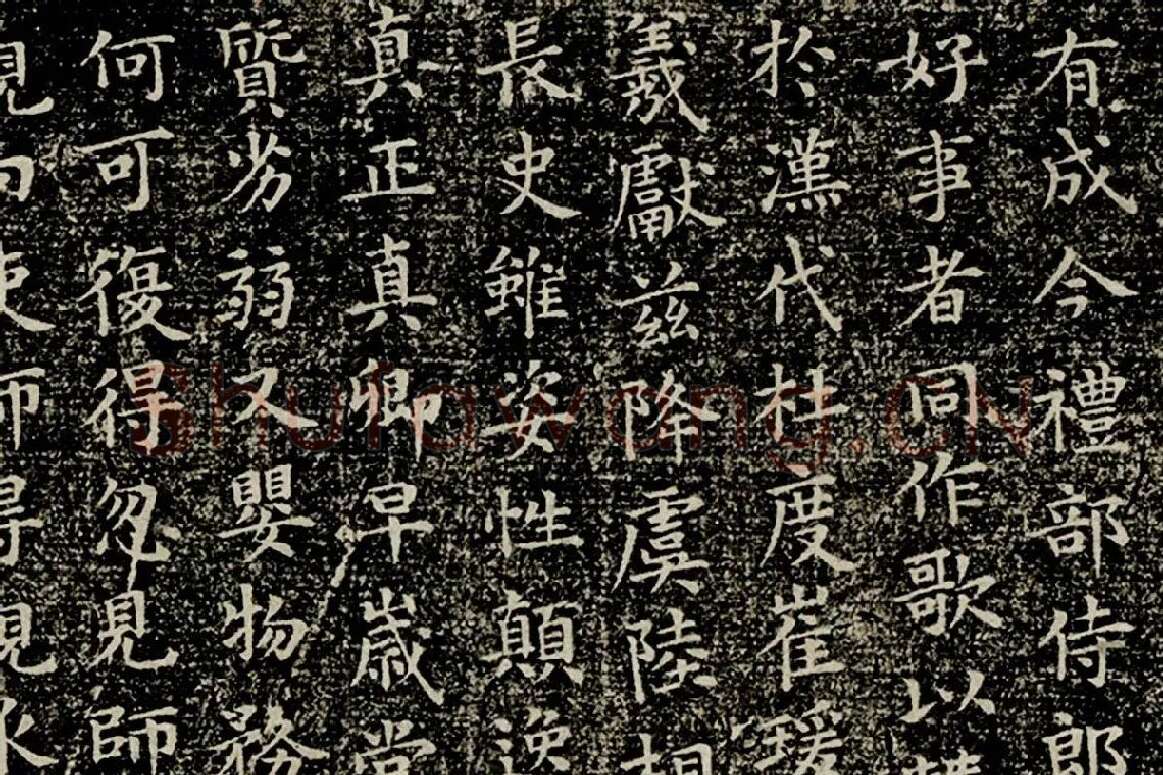 有成今禮部侍郎
好事者同作歌以
於漢代杜度崔瑗
羲獻茲降虞陸相
長史雖姿性顛逸
真正真卿早歲常
質劣弱又嬰物務
何可復得忽見師
Shufawang.CN